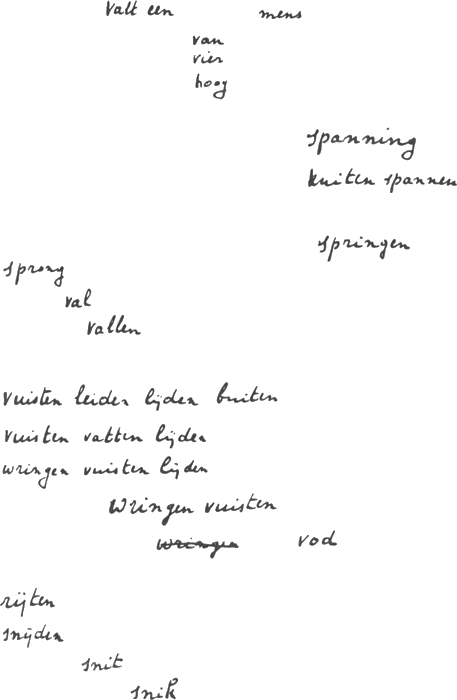 valt een mens
van
vier
hoog
spanning
kuiten spannen
springen
sprong
val
vallen
vuisten leiden lijden buiten
vuisten vatten lijden
wringen vuisten lijden
Wringen vuisten
wringen vod
rijten
snijden
snit
snik